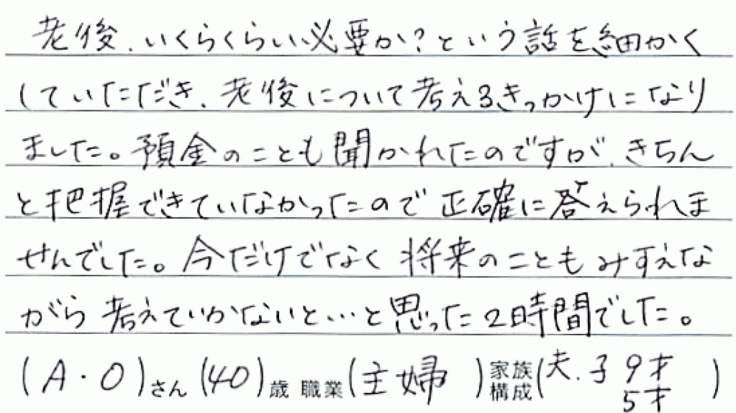 老後、いくらくらい必要か?という話を細かく
していただき、老後について考えるきっかけになり
ました。預金のことも聞かれたのですが、きちん
と把握できていなかったので正確に答えられま
せんでした。今だけでなく将来のこともみすえな
がら考えていかないと…と思った2時間でした。
(A・O)さん(40)歳 職業(主婦)家族構成(夫、子9才 5才)